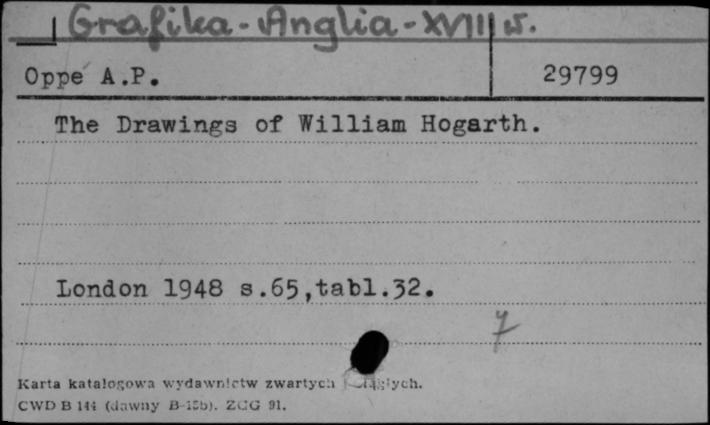 Grafika - Anglia - XVIII w.
Oppé A.P. 29799
The Drawings of William Hogarth.
London 1948 s.65,tabl.32.
7
Karta katalogowa wydawnictw zwartych i ciągłych.
CWD B 144 (dawny B-15b). ZCG 91.